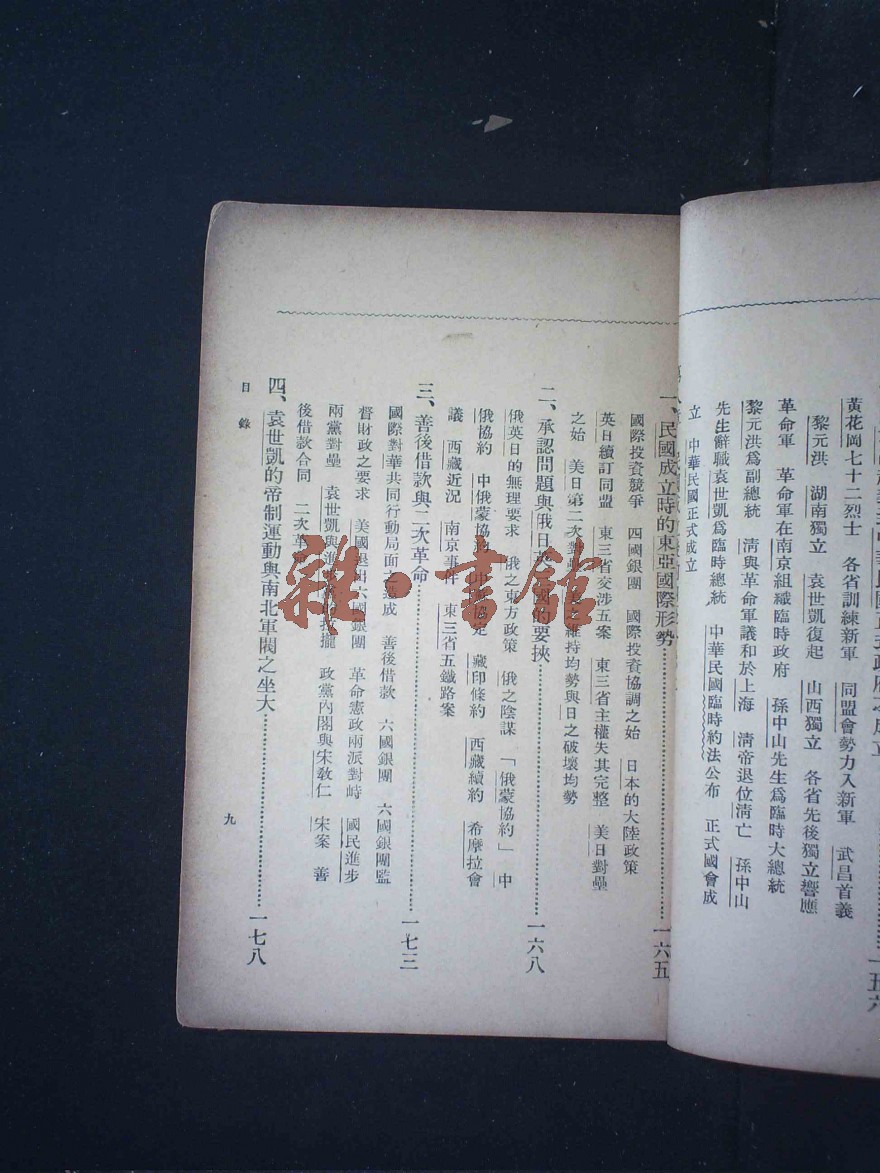 黃花岡七十二烈士 各省訓練新軍 同盟會勢力入新軍 武昌首義
黎元洪 湖南獨立 袁世凱復起 山西獨立 各省先後獨立響應
革命軍 革命軍在南京組織臨時政府 孫中山先生爲臨時大總統
黎元洪爲副總統 淸與革命軍議和於上海 淸帝退位淸亡 孫中山
先生辭職袁世凱爲臨時總統 中華民國臨時約法公布 正式國會成
立 中華民國正式成立
一、民國成立時的東亞國際形勢……一六五
國際投資競爭 四國銀團 國際投資協調之始 日本的大陸政策
英日續訂同盟 東三省交涉五案 東三省主權失其完整 美日對壘
之始 美日第二次對 維持均勢與日之破壞均勢
二、承認問題與俄日 國的要挾……一六八
俄英日的無理要求 俄之東方政策 俄之陰謀 「俄蒙協約」 中
俄協約 中俄蒙協約 協定 藏印條約 西藏續約 希摩拉會
議 西藏近況 南京事件 東三省五鐵路案
三、善後借款與二次革命……一七三
國際對華共同行動局面之造成 善後借款 六國銀團 六國銀團監
督財政之要求 美國退出六國銀團 革命憲政兩派對峙 國民進步
兩黨對壘 袁世凱與進 攏 政黨內閣與宋敎仁 宋案 善
後借款合同 二次革命
四、袁世凱的帝制運動與南北軍閥之坐大……一七八
目錄
九
雜·書館